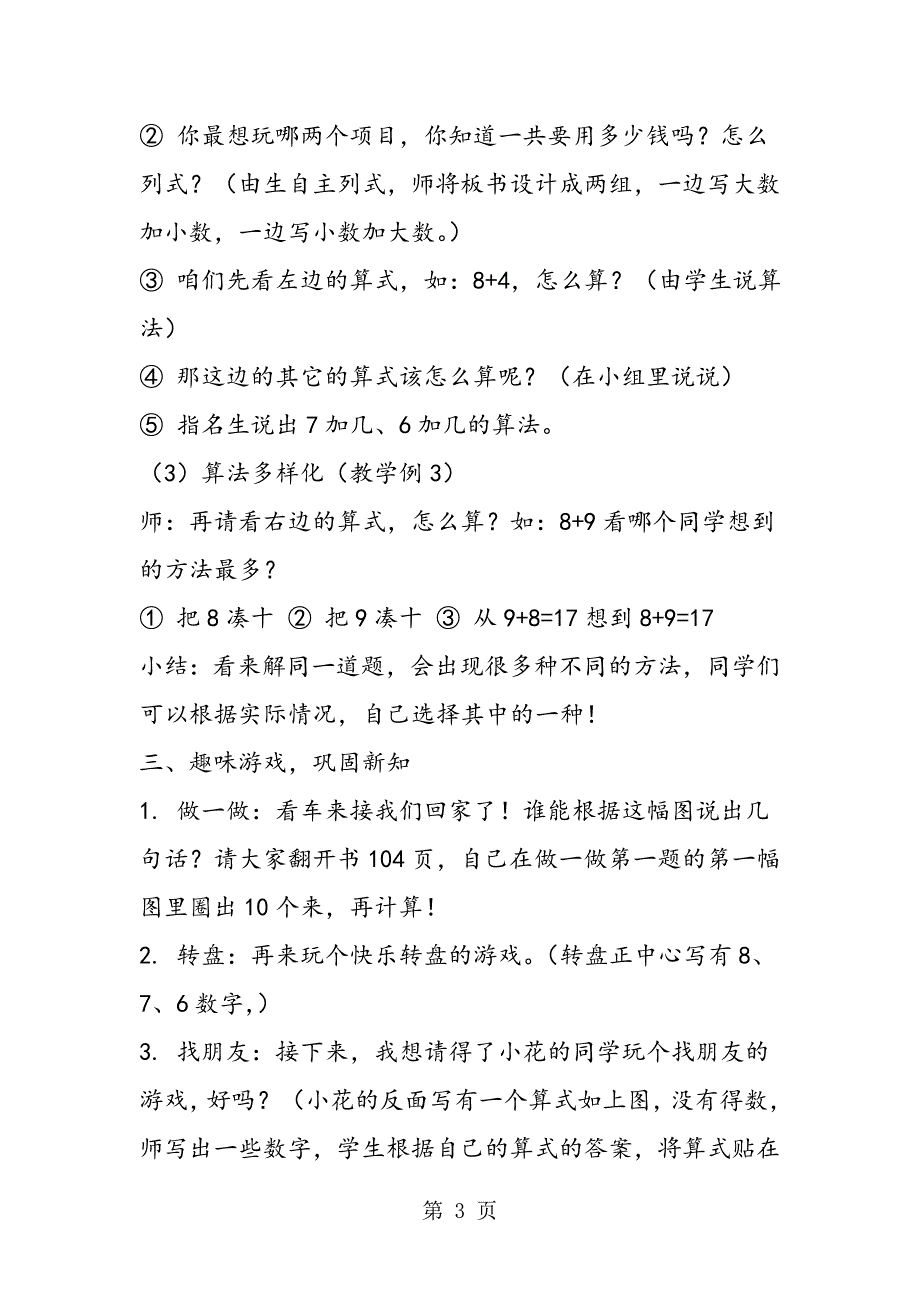 ② 你最想玩哪两个项目，你知道一共要用多少钱吗？怎么
列式？（由生自主列式，师将板书设计成两组，一边写大数
加小数，一边写小数加大数。）
③ 咱们先看左边的算式，如：8+4，怎么算？（由学生说算
法）
④ 那这边的其它的算式该怎么算呢？（在小组里说说）
⑤ 指名生说出 7 加几、6 加几的算法。
（3）算法多样化（教学例 3）
师：再请看右边的算式，怎么算？如：8+9 看哪个同学想到
的方法最多？
① 把 8 凑十 ② 把 9 凑十 ③ 从 9+8=17 想到 8+9=17
小结：看来解同一道题，会出现很多种不同的方法，同学们
可以根据实际情况，自己选择其中的一种！
三、趣味游戏，巩固新知
1. 做一做：看车来接我们回家了！谁能根据这幅图说出几
句话？请大家翻开书 104 页，自己在做一做第一题的第一幅
图里圈出 10 个来，再计算！
2. 转盘：再来玩个快乐转盘的游戏。（转盘正中心写有 8、
7、6 数字，）
3. 找朋友：接下来，我想请得了小花的同学玩个找朋友的
游戏，好吗？（小花的反面写有一个算式如上图，没有得数，
师写出一些数字，学生根据自己的算式的答案，将算式贴在
第 3 页